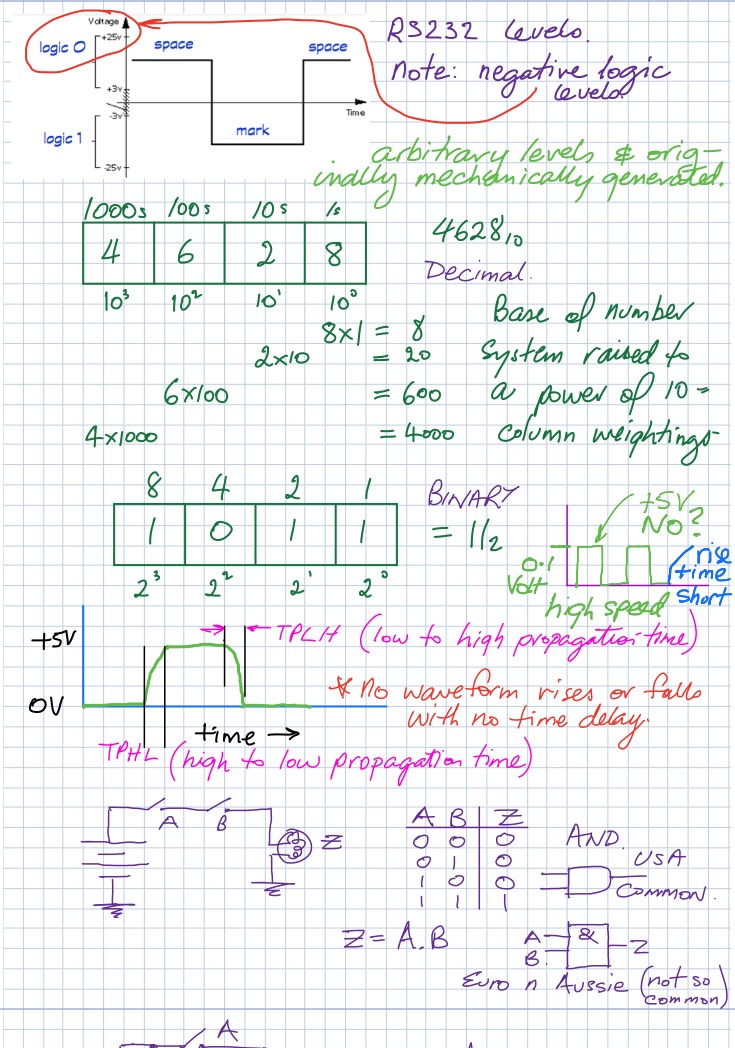 Voltage
+25v
logic 0
space
space
+3v
-3v
Time
logic 1
mark
-25v
RS232 levels.
Note: negative logic
levels.
arbitrary levels & orig-
inally mechanically generated.
1000s 100s 10s 1s
4 6 2 8
10³ 10² 10¹ 10⁰
4628₁₀
Decimal.
8x1 = 8
2x10 = 20
6x100 = 600
4x1000 = 4000
Base of number
system raised to
a power of 10 =
column weightings
8 4 2 1
1 0 1 1
2³ 2² 2¹ 2⁰
BINARY
= 11₂
+5V
NO?
0.1
Volt
rise
time
short
high speed
+5V
0V
time →
TPLH (low to high propagation time)
* No waveform rises or falls
with no time delay.
TPHL (high to low propagation time)
A B Z
A B Z
0 0 0
0 1 0
1 0 0
1 1 1
AND.
USA
COMMON.
Z = A.B
A
B
&
Z
Euro n Aussie (not so
common)
A